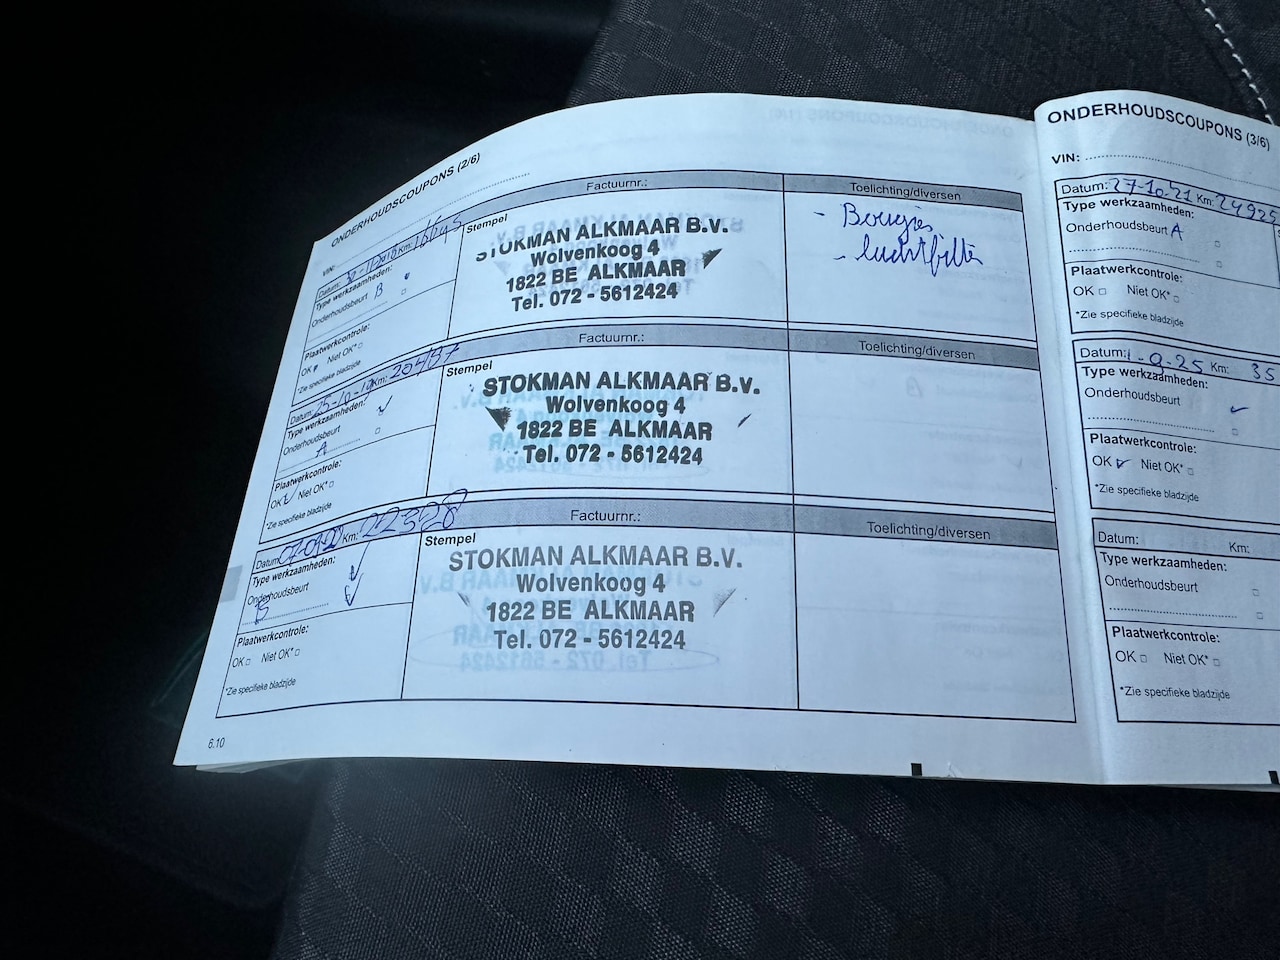 ONDERHOUDSCOUPONS (2/6)
VIN:
Factuurnr.:
Toelichting/diversen
Datum: Km: 16645
Type werkzaamheden:
Onderhoudsbeurt B
Plaatwerkcontrole:
OK Niet OK*
*Zie specifieke bladzijde
Stempel
STOKMAN ALKMAAR B.V.
Wolvenkoog 4
1822 BE ALKMAAR
Tel. 072 - 5612424
- Bougies
- luchtfilter
Factuurnr.:
Toelichting/diversen
Datum: 25-10-19 Km: 20457
Type werkzaamheden:
Onderhoudsbeurt
A
Plaatwerkcontrole:
OK Niet OK*
*Zie specifieke bladzijde
Stempel
STOKMAN ALKMAAR B.V.
Wolvenkoog 4
1822 BE ALKMAAR
Tel. 072 - 5612424
Factuurnr.:
Toelichting/diversen
Datum: Km: 22328
Type werkzaamheden:
Onderhoudsbeurt
B
Plaatwerkcontrole:
OK Niet OK*
*Zie specifieke bladzijde
Stempel
STOKMAN ALKMAAR B.V.
Wolvenkoog 4
1822 BE ALKMAAR
Tel. 072 - 5612424
6.10
ONDERHOUDSCOUPONS (3/6)
VIN:
Datum: 27-10-21 Km: 24925
Type werkzaamheden:
Onderhoudsbeurt A
Plaatwerkcontrole:
OK Niet OK*
*Zie specifieke bladzijde
Datum: 1-9-25 Km: 35
Type werkzaamheden:
Onderhoudsbeurt
Plaatwerkcontrole:
OK Niet OK*
*Zie specifieke bladzijde
Datum: Km:
Type werkzaamheden:
Onderhoudsbeurt
Plaatwerkcontrole:
OK Niet OK*
*Zie specifieke bladzijde